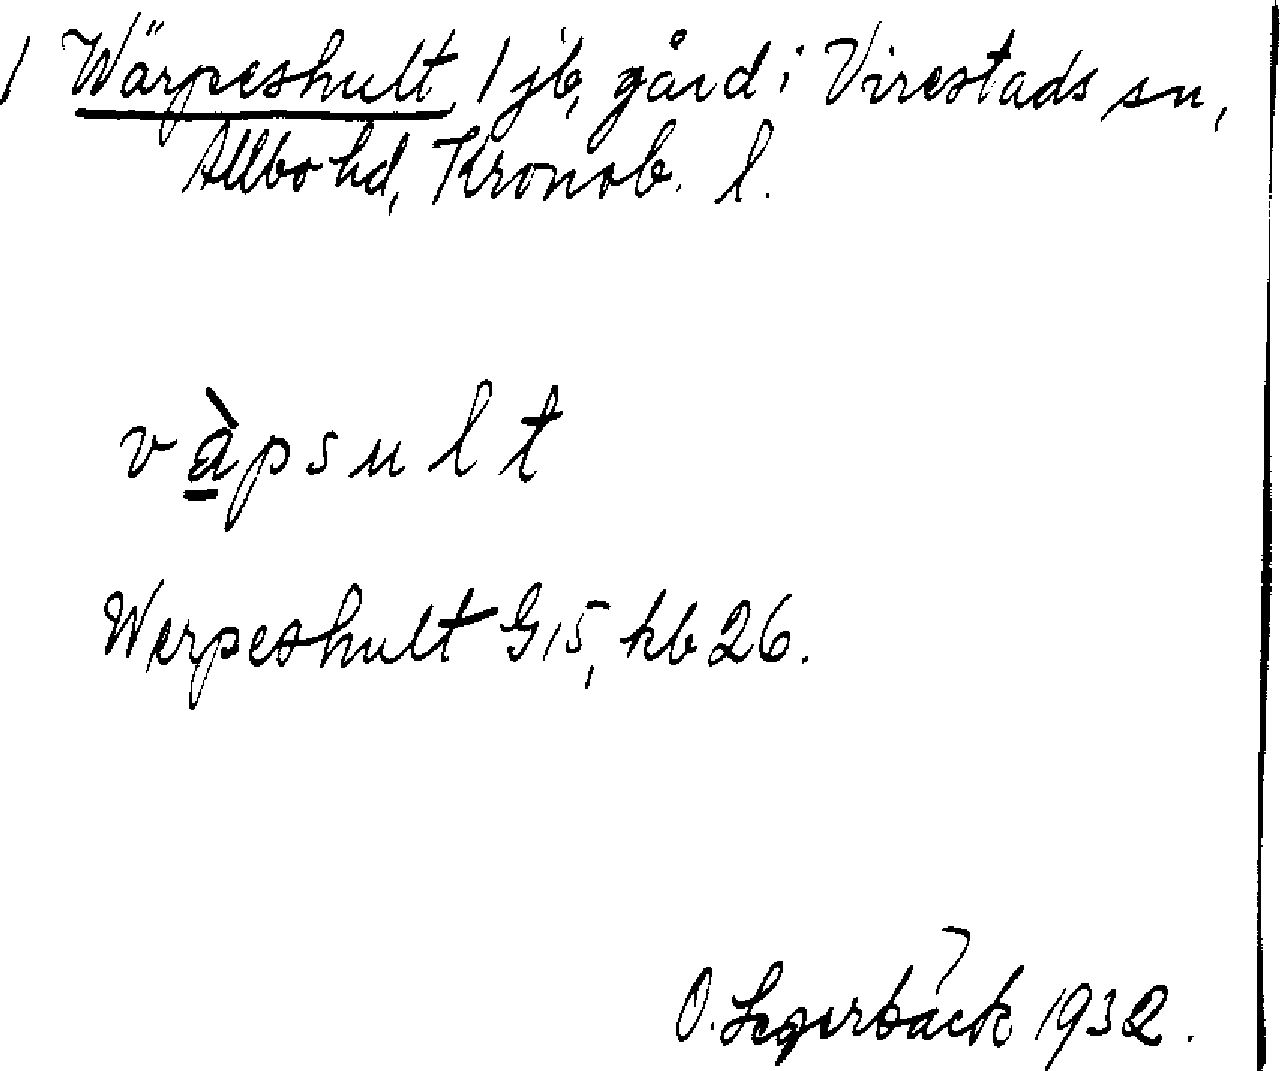 / Wärpeshult, 1 jb, gård i Virestads sn,
Allbo hd, Kronob. l.
vàpsult
Werpeshult G15, kb 26.
O. Segerbäck 1932.